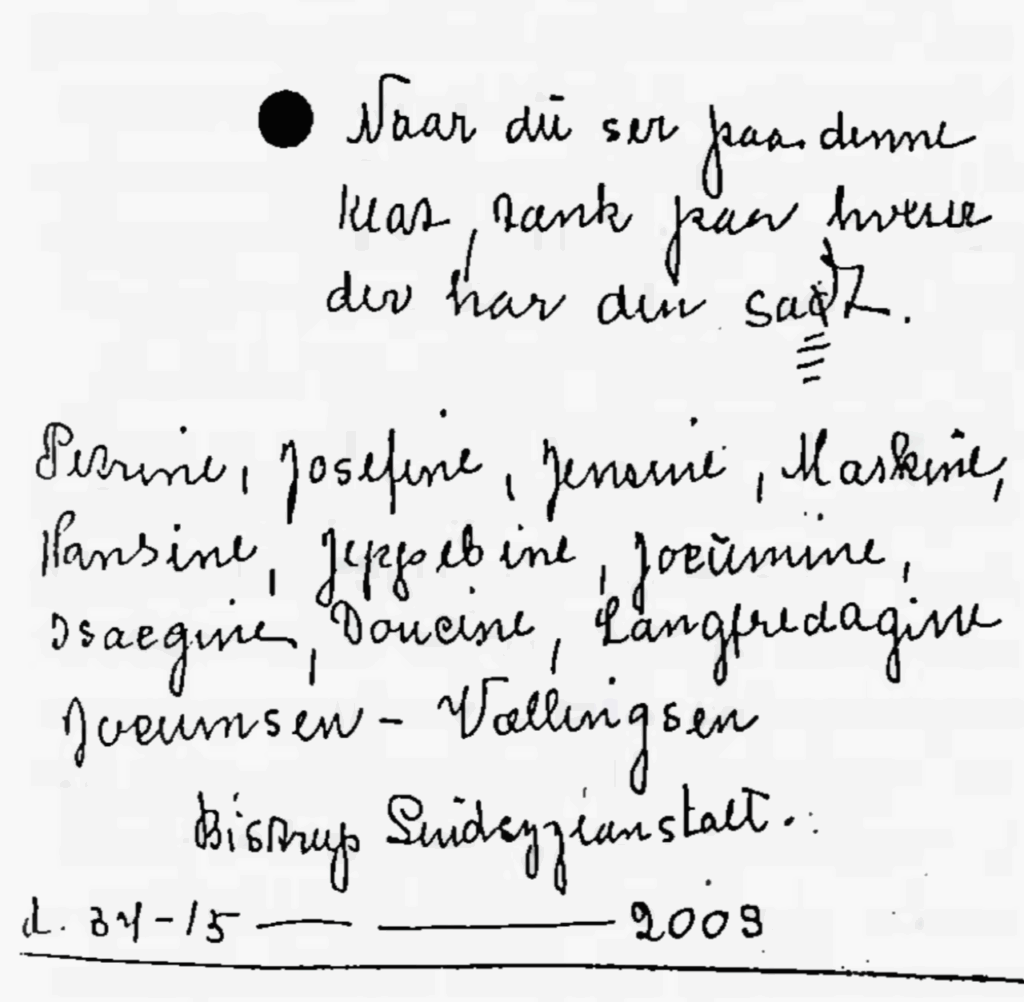 Naar du ser paa denne
klat, tænk paa hvem
der har den sat.
Petrine, Josefine, Jensine, Maskine,
Hansine, Jeppebine, Jocumine,
Isaegine, Doucine, Langfredagine
Jocumsen - Vællingsen
Bistrup Sindsygianstalt.
d. 34-15 — — 2009